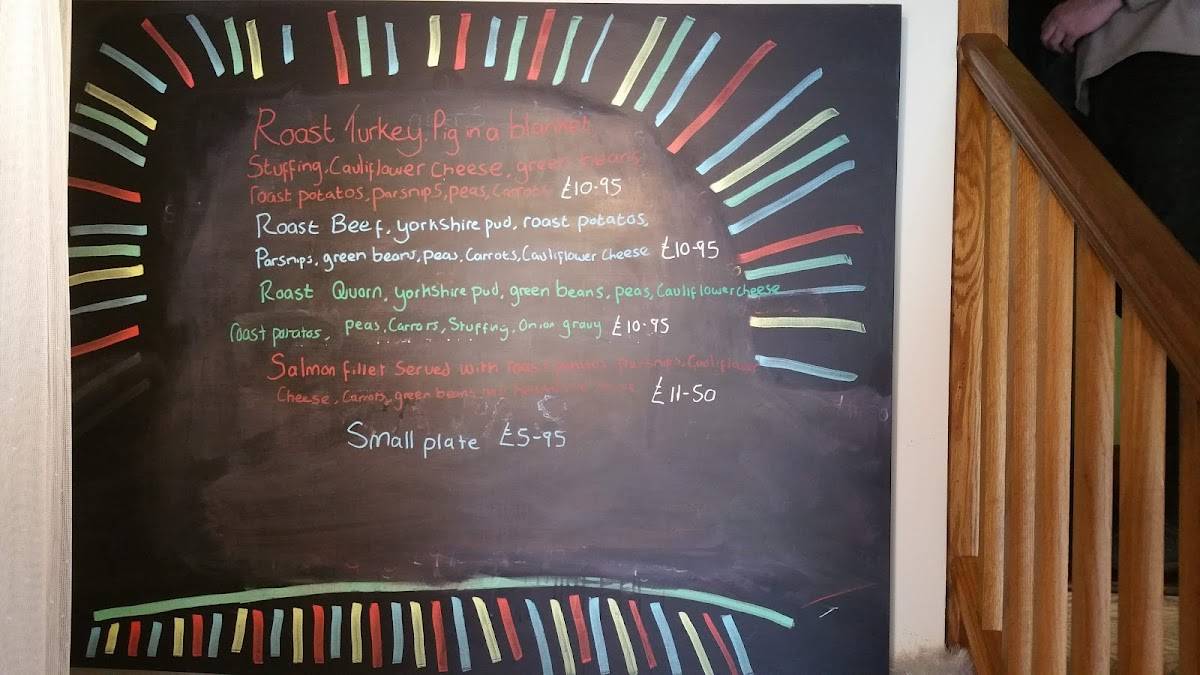 Roast Turkey. Pig in a blanket
Stuffing, Cauliflower cheese, green beans,
roast potatos, parsnips, peas, Carrots £10-95
Roast Beef, yorkshire pud, roast potatos,
Parsnips, green beans, peas, Carrots, Cauliflower cheese £10-95
Roast Quorn, yorkshire pud, green beans, peas, Cauliflower cheese
roast potatos, peas, Carrots, Stuffing, Onion gravy £10-95
Salmon fillet Served with roast potatos Parsnips, Cauliflower
Cheese, Carrots, green beans £11-50
Small plate £5-95